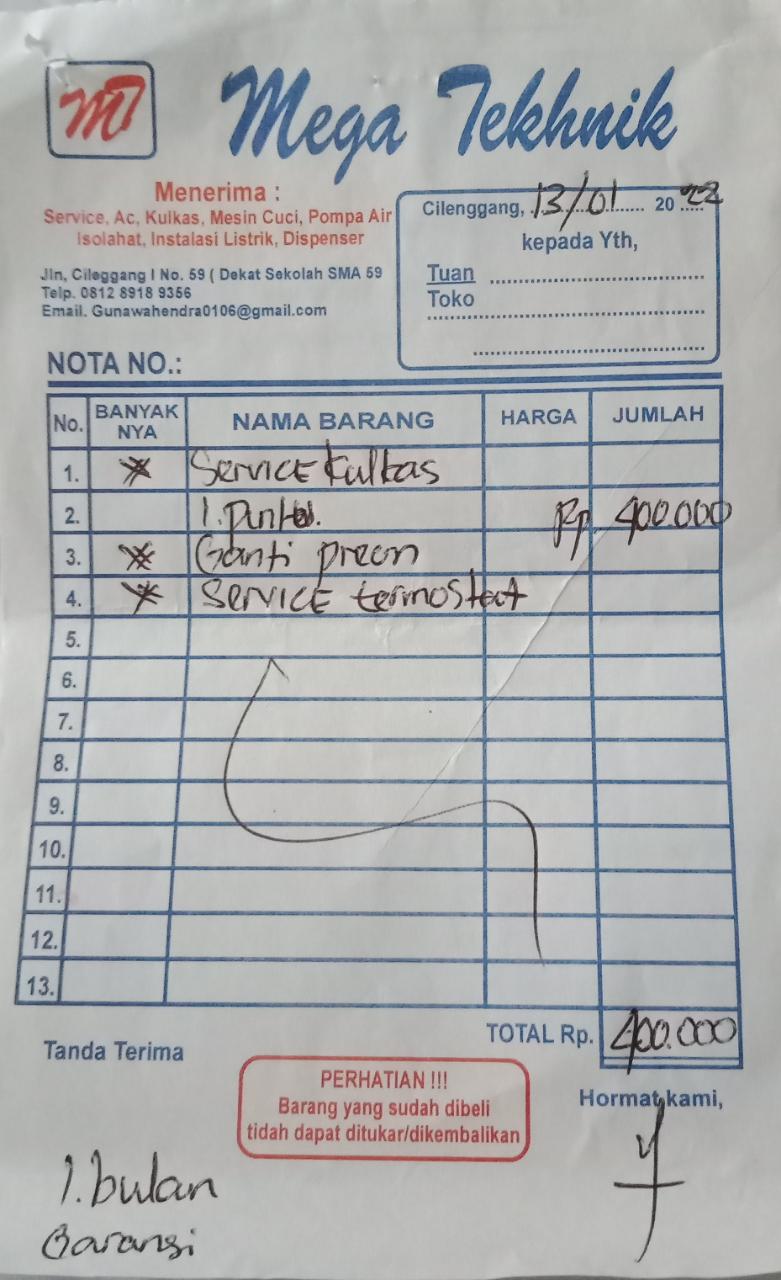 MT
Mega Tekhnik
Menerima :
Service, Ac, Kulkas, Mesin Cuci, Pompa Air
Isolahat, Instalasi Listrik, Dispenser
Jln, Cileggang I No. 59 ( Dekat Sekolah SMA 59
Telp. 0812 8918 9356
Email. Gunawahendra0106@gmail.com
Cilenggang, 13/01 20 22
kepada Yth,
Tuan
Toko
NOTA NO.:
No. BANYAK NYA NAMA BARANG HARGA JUMLAH
1. Service Kulkas
2. 1. Pintu. Rp. 400.000
3. Ganti preon
4. Service termostat
5.
6.
7.
8.
9.
10.
11.
12.
13.
TOTAL Rp. 400.000
Tanda Terima
PERHATIAN !!!
Barang yang sudah dibeli
tidah dapat ditukar/dikembalikan
Hormat kami,
1. bulan
Garansi